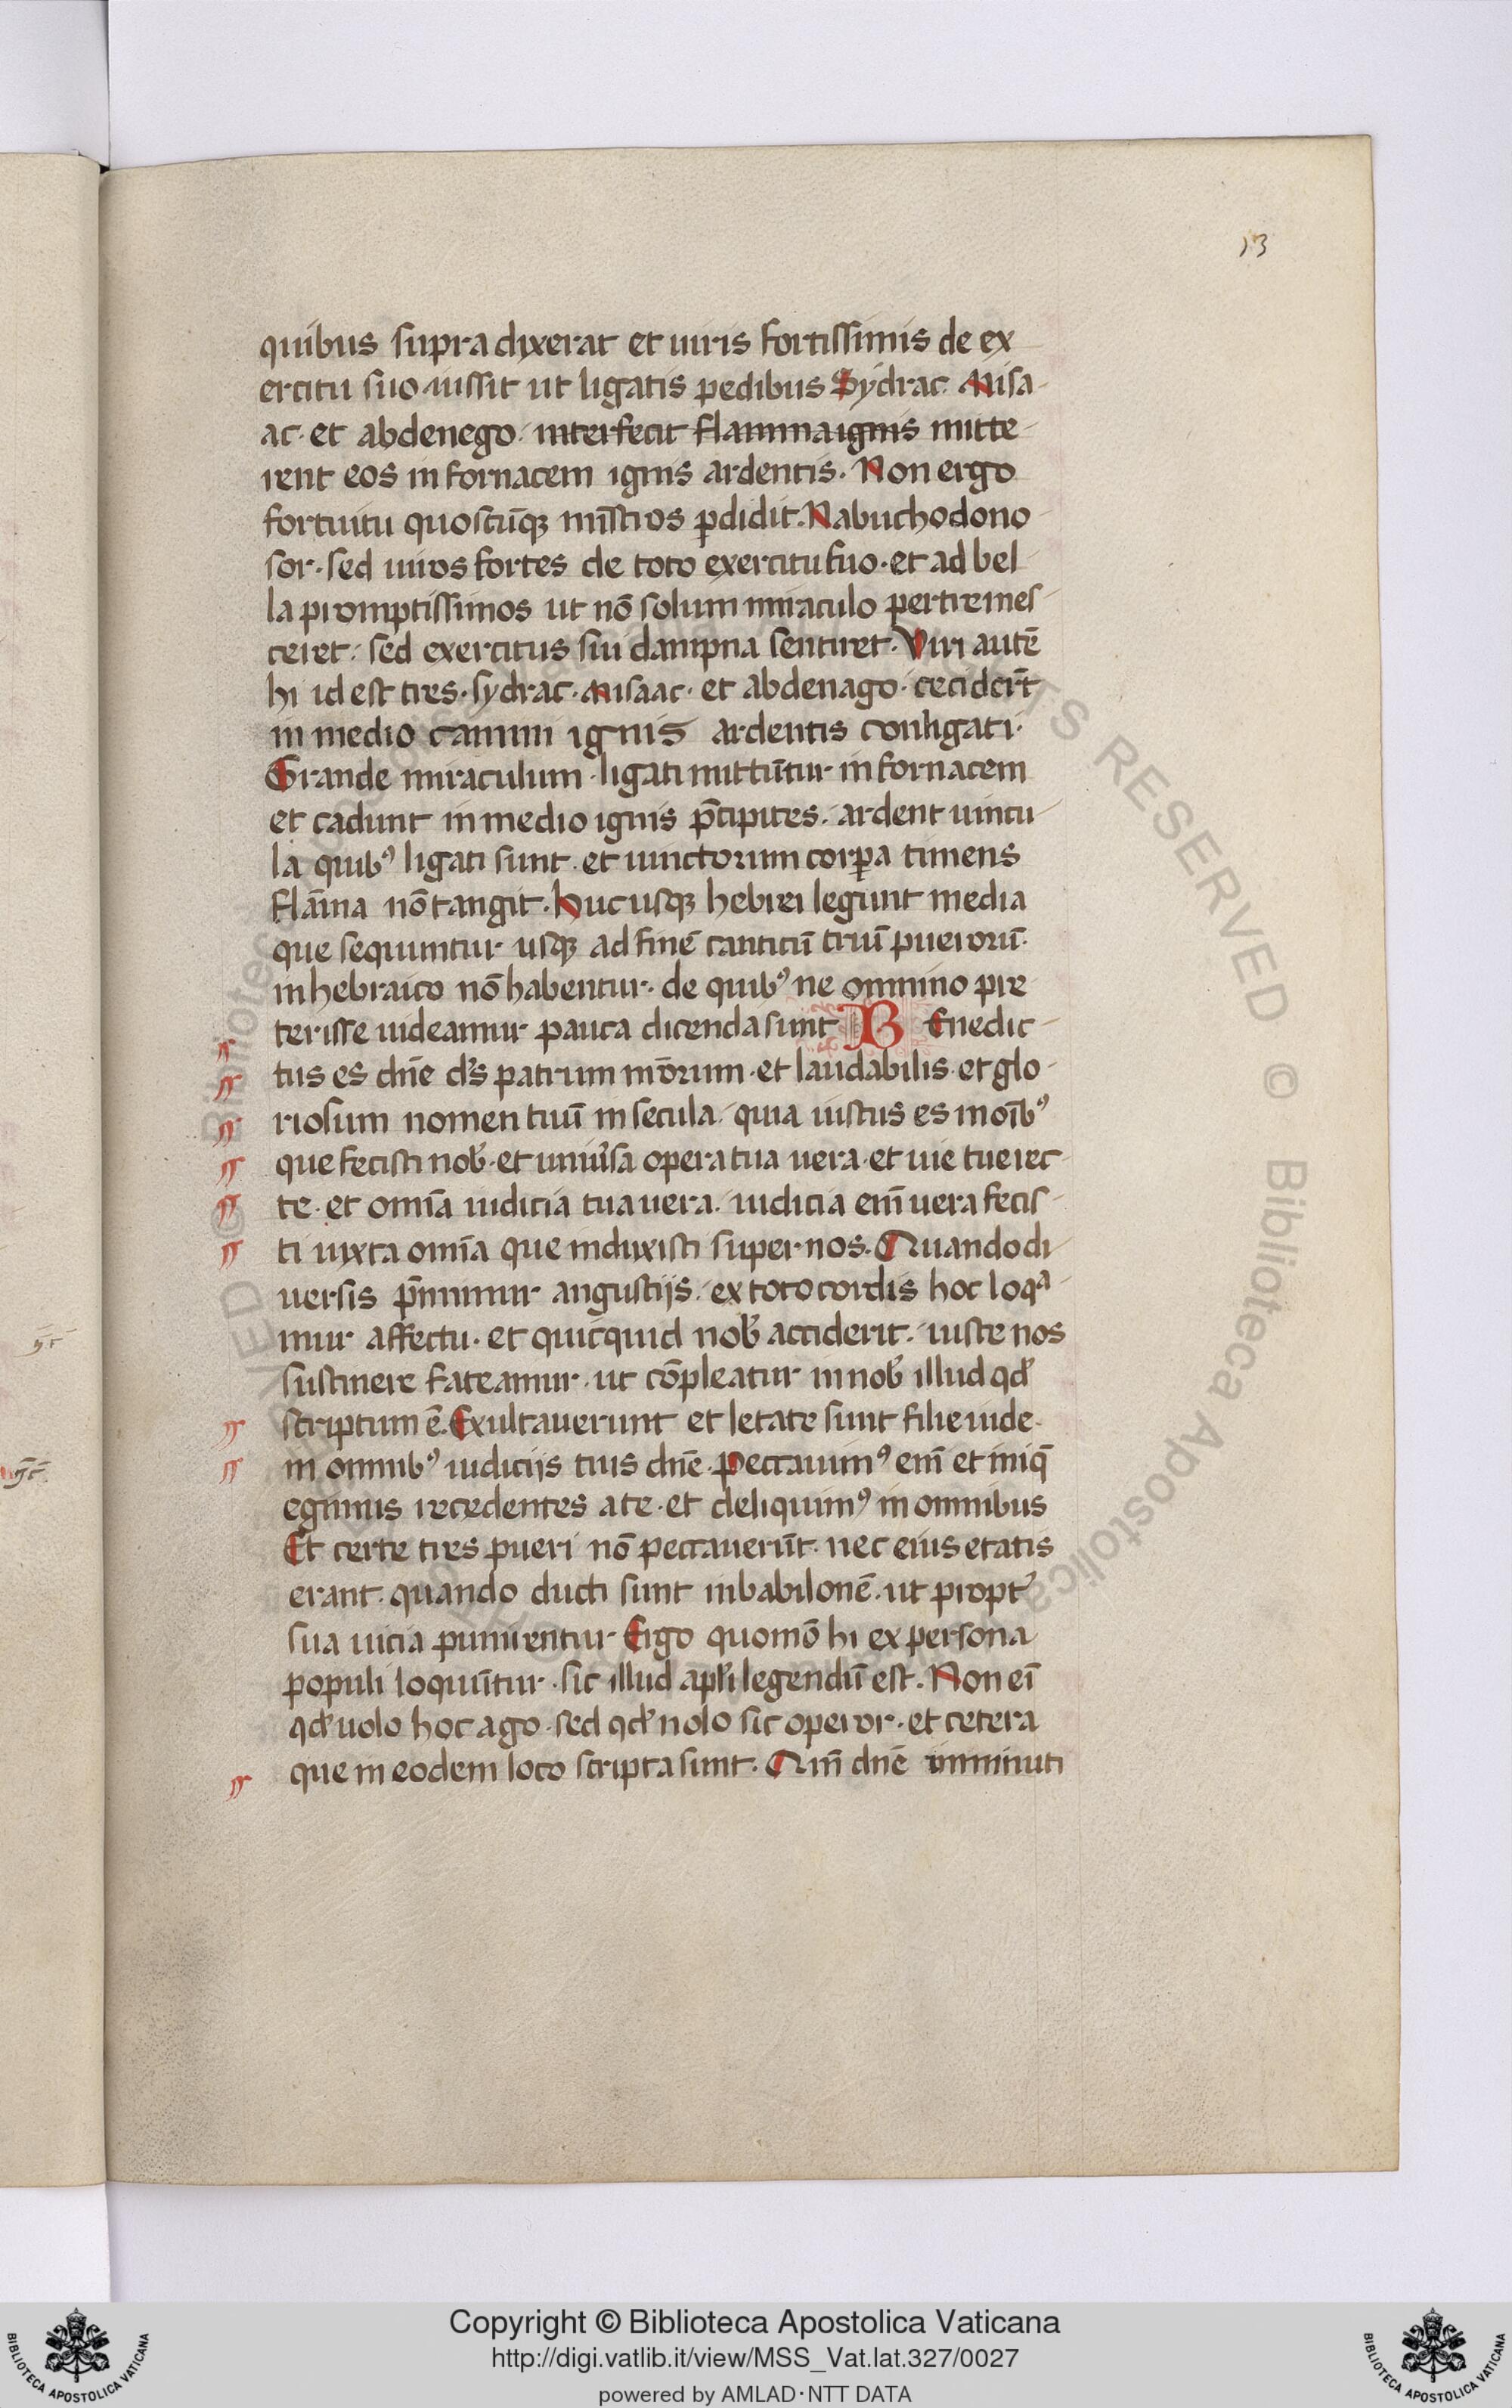 13
quibus supra dixerat et uiris fortissimis de ex
ercitu suo iussit ut ligatis pedibus Sydrac. Misa-
ac. et abdenego. interfecit flamma ignis mitte-
rent eos in fornacem ignis ardentis. Non ergo
fortuitu quoscūqꝫ mīstros ꝑdidit. Nabuchodono-
sor. sed uiros fortes de toto exercitu suo. et ad bel-
la promptissimos ut nō solum miraculo pertremes-
ceret. sed exercitus sui dampna sentiret. Viri autē
hi id est tres. sydrac. Misaac. et abdenago. cecider̄t
in medio camini ignis ardentis conligati.
Grande miraculum. ligati mittūtur in fornacem
et cadunt in medio ignis p̄cipites. ardent uincu-
la quibꝰ ligati sunt. et uinctorum corꝑa timens
flāma nō tangit. Hucusqꝫ hebrei legunt media
que sequuntur usqꝫ ad finē canticū triū puerorū.
in hebraico nō habentur. de quibꝰ ne omnino pre
terisse uideamur pauca dicenda sunt BEnedic-
tus es dn̄e ds̄ patrum nr̄orum. et laudabilis. et glo-
riosum nomen tuū in secula. quia iustus es in oībꝰ
que fecisti nob̄. et uniu̓sa opera tua uera. et uie tue rec-
te. et omīa iudicia tua uera. iudicia em̄ uera fecis-
ti iuxta omīa que induxisti super nos. Quando di-
uersis p̄mimur angustijs. ex toto cordis hoc loqᵃ-
mur affectu. et quicquid nob̄ acciderit. iuste nos
sustinere fateamur. ut cōpleatur in nob̄ illud qd̄
scriptum ē. Exultauerunt et letate sunt filie iude.
in omnibꝰ iudicijs tuis dn̄e. Peccauimꝰ em̄ et iniq̄
egimus recedentes a te. et deliquimꝰ in omnibus
Et certe tres pueri nō peccauerūt. nec eius etatis
erant. quando ducti sunt in babilonē. ut propt̓
sua uicia punirentur. Ergo quomō hi ex persona
populi loquūtur. sic illud apl̄i legendū est. Non eī
qd̄ uolo hoc ago. sed qd̄ nolo sic operor. et cetera
que in eodem loco scripta sunt. Qm̄ dn̄e imminuti
Copyright © Biblioteca Apostolica Vaticana
http://digi.vatlib.it/view/MSS_Vat.lat.327/0027
powered by AMLAD·NTT DATA